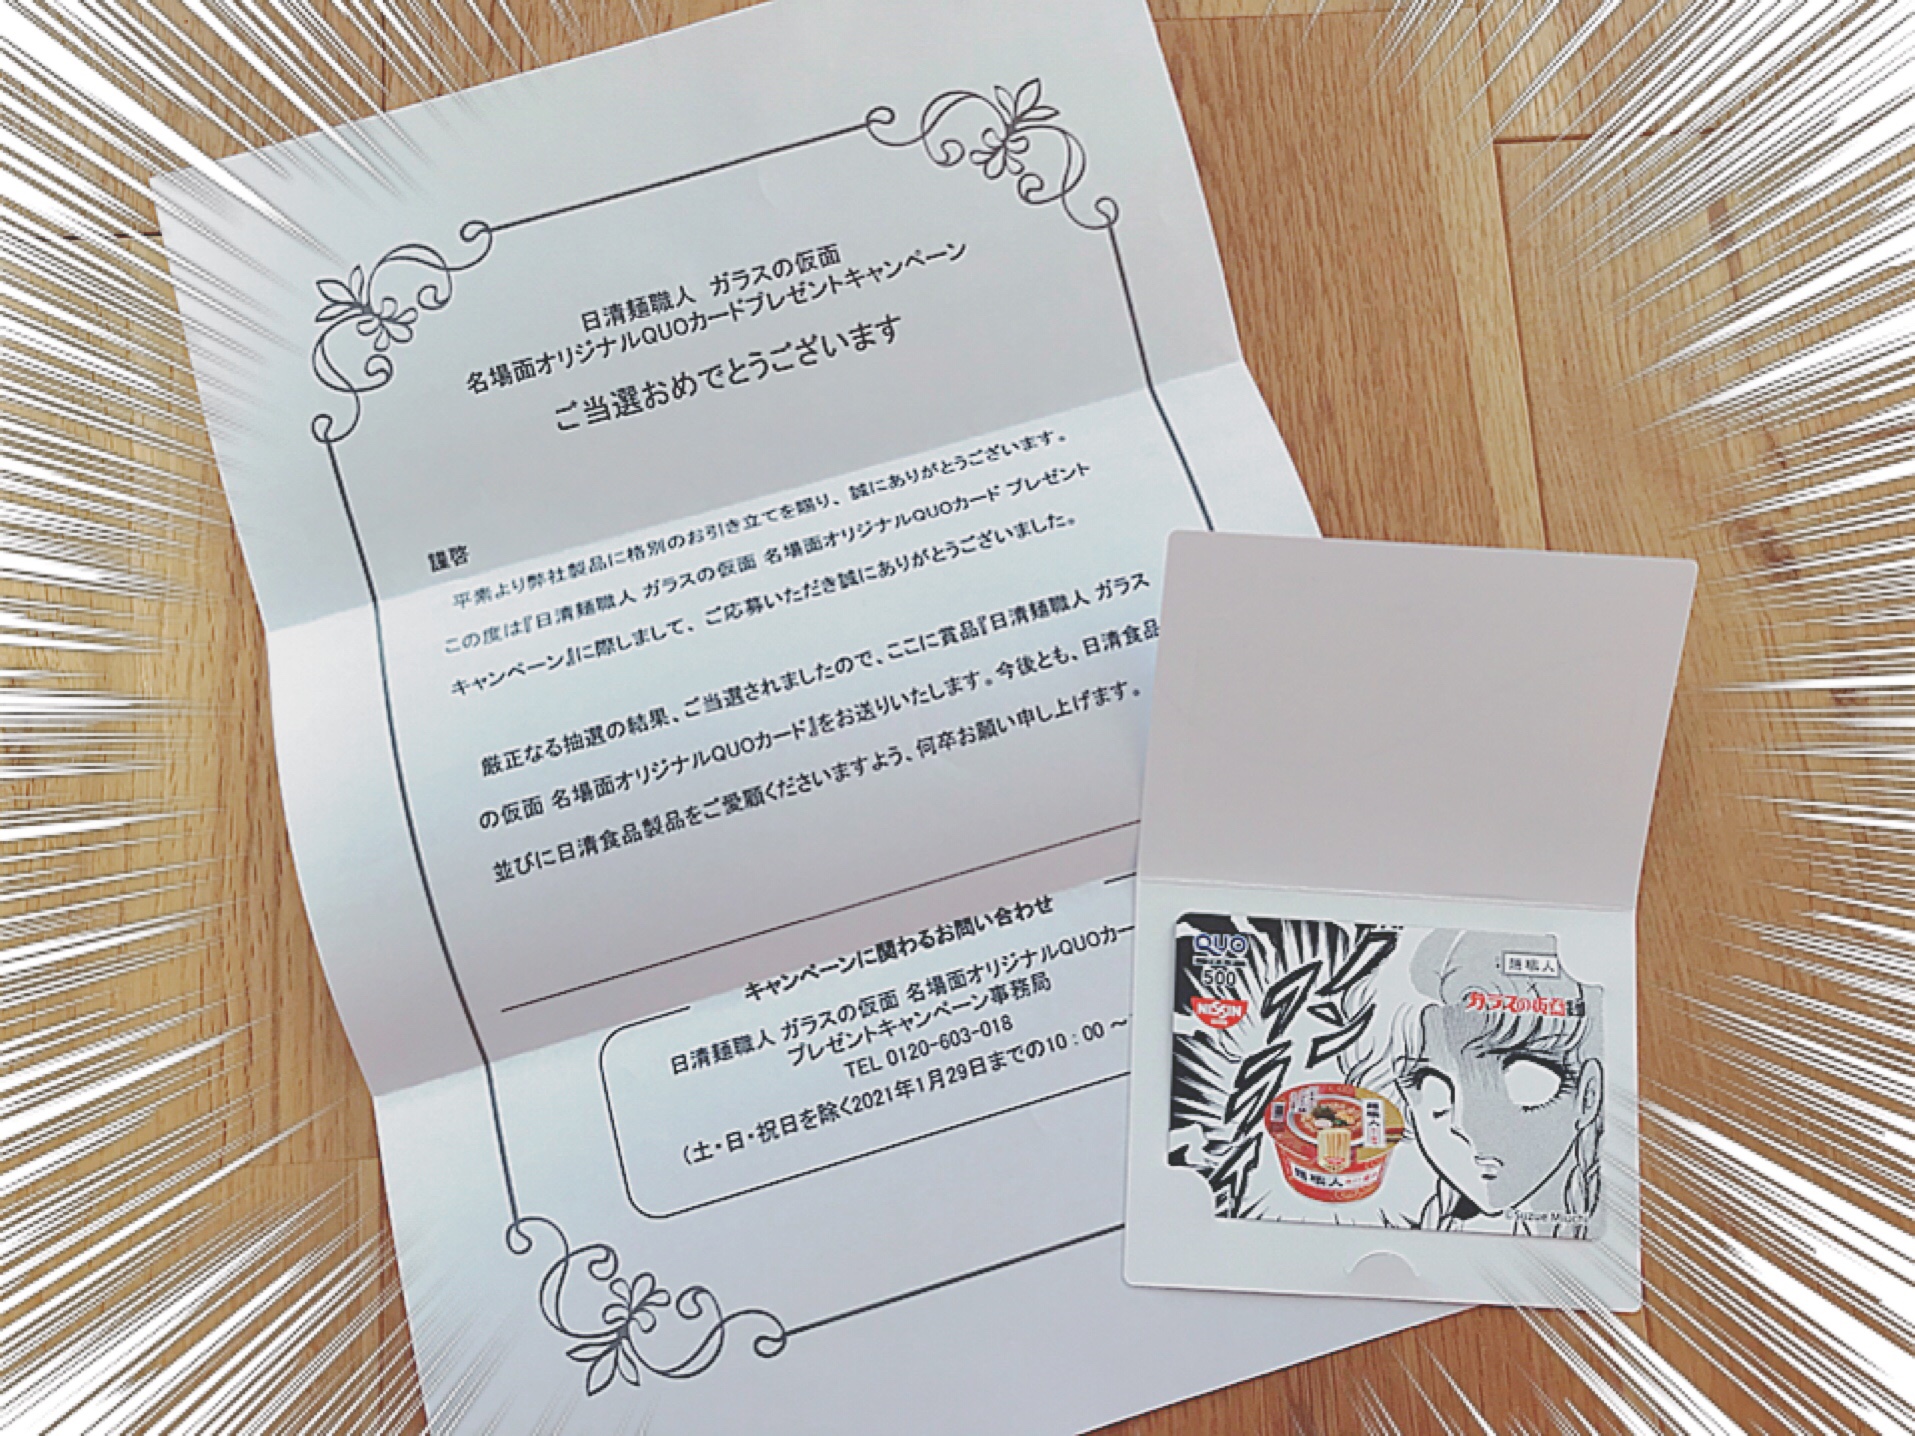 日清麺職人 ガラスの仮面
名場面オリジナルQUOカードプレゼントキャンペーン
ご当選おめでとうございます
謹啓
平素より弊社製品に格別のお引き立てを賜り、誠にありがとうございます。
この度は『日清麺職人 ガラスの仮面 名場面オリジナルQUOカード プレゼント
キャンペーン』に際しまして、ご応募いただき誠にありがとうございました。
厳正なる抽選の結果、ご当選されましたので、ここに賞品『日清麺職人 ガラス
の仮面 名場面オリジナルQUOカード』をお送りいたします。今後とも、日清食品
並びに日清食品製品をご愛顧くださいますよう、何卒お願い申し上げます。
キャンペーンに関わるお問い合わせ
日清麺職人 ガラスの仮面 名場面オリジナルQUOカー
プレゼントキャンペーン事務局
TEL 0120-603-018
(土・日・祝日を除く2021年1月29日までの10:00～
QUO
500
NISSIN
麺職人
×
ガラスの仮面
麺職人
麺職人
©Suzue Miuchi